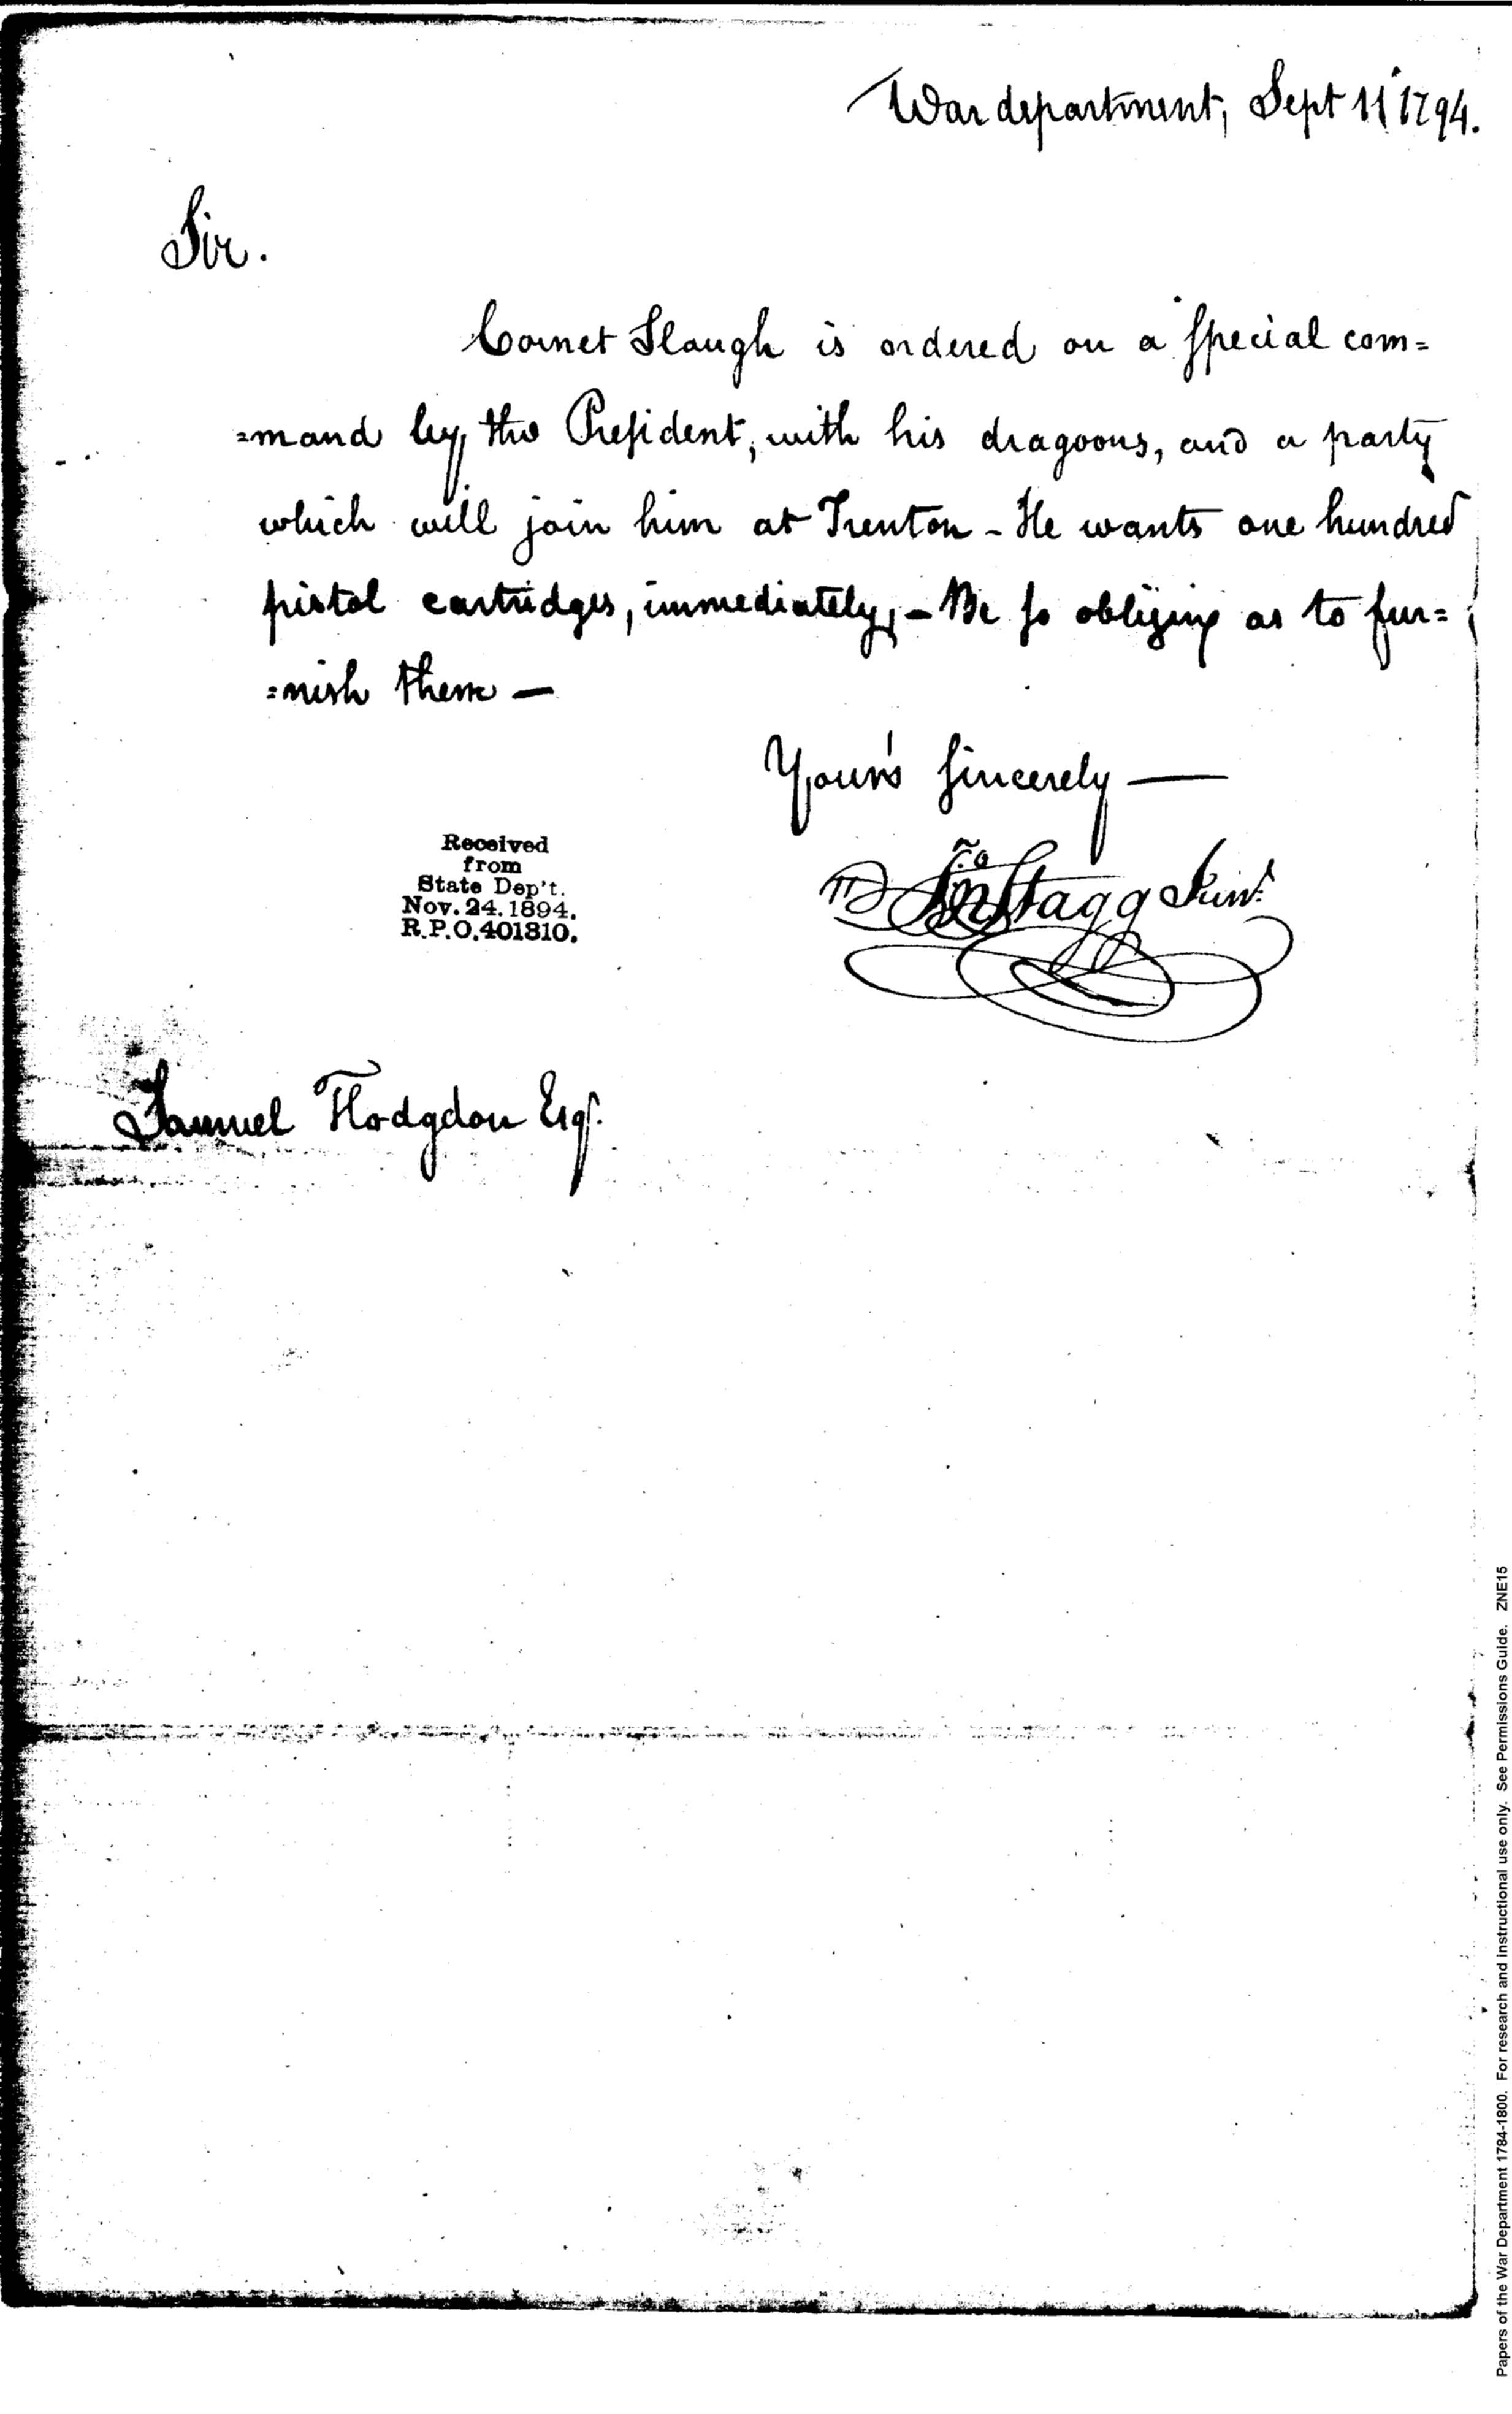 War department, Sept 11 1794.
Sir.
Cornet Slough is ordered on a special com=
=mand by the President, with his dragoons, and a party
which will join him at Trenton - He wants one hundred
pistol cartridges, immediately, - Be so obliging as to fur=
=nish them —
Your's sincerely —
Jno Stagg Junr.
Received
from
State Dep't.
Nov. 24. 1894.
R.P.O. 401310.
Samuel Hodgdon Esqr.
Papers of the War Department 1784-1800. For research and instructional use only. See Permissions Guide. ZNE15